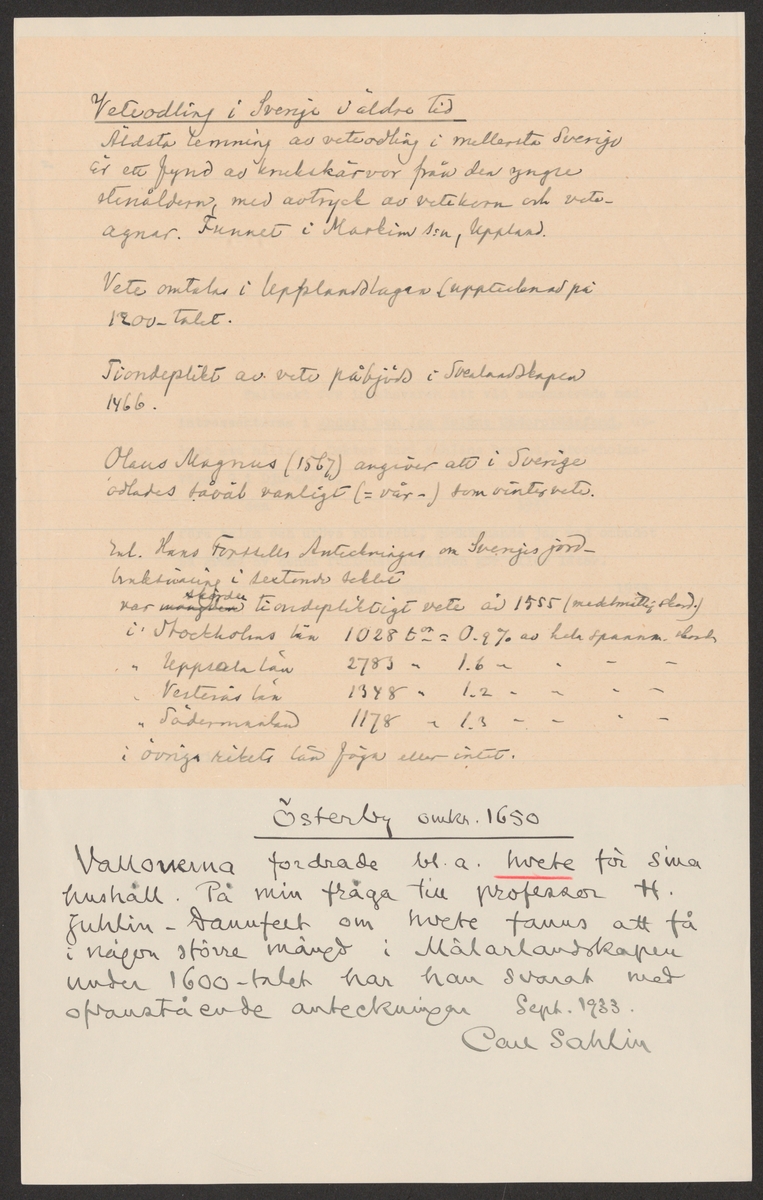 Veteodling i Sverige i äldre tid
Äldsta lemning av veteodling i mellersta Sverige
är ett fynd av krukskärvor från den yngre
stenåldern, med avtryck av vetekorn och vete-
agnar. Funnet i Markim s:n, Uppland.
Vete omtalas i Upplandslagen (upptecknad på
1200-talet.
Tiondeplikt av vete påbjöds i Svealandskapen
1466.
Olaus Magnus (1567) angiver att i Sverige
odlades såväl vanligt (= vår-) som vintervete.
Enl. Hans Forssells Anteckningar om Sveriges jord-
bruksnäring i sextonde seklet
var skörden tiondepliktigt vete år 1555 (medelmåttig skörd.)
i Stockholms län 1028 tr = 0.9% av hela spannm. skörd
" Uppsala län 2783 " 1.6 " " " "
" Vesterås län 1348 " 1.2 " " " "
" Södermanland 1178 " 1.3 " " " "
i övriga rikets län föga eller intet.
Österby omkr. 1650
Vallonerna fordrade bl.a. hvete för sina
hushåll. På min fråga till professor H.
Juhlin-Dannfelt om hvete fanns att få
i någon större mängd i Mälarlandskapen
under 1600-talet har han svarat med
ofvanstående anteckningar Sept. 1933.
Carl Sahlin